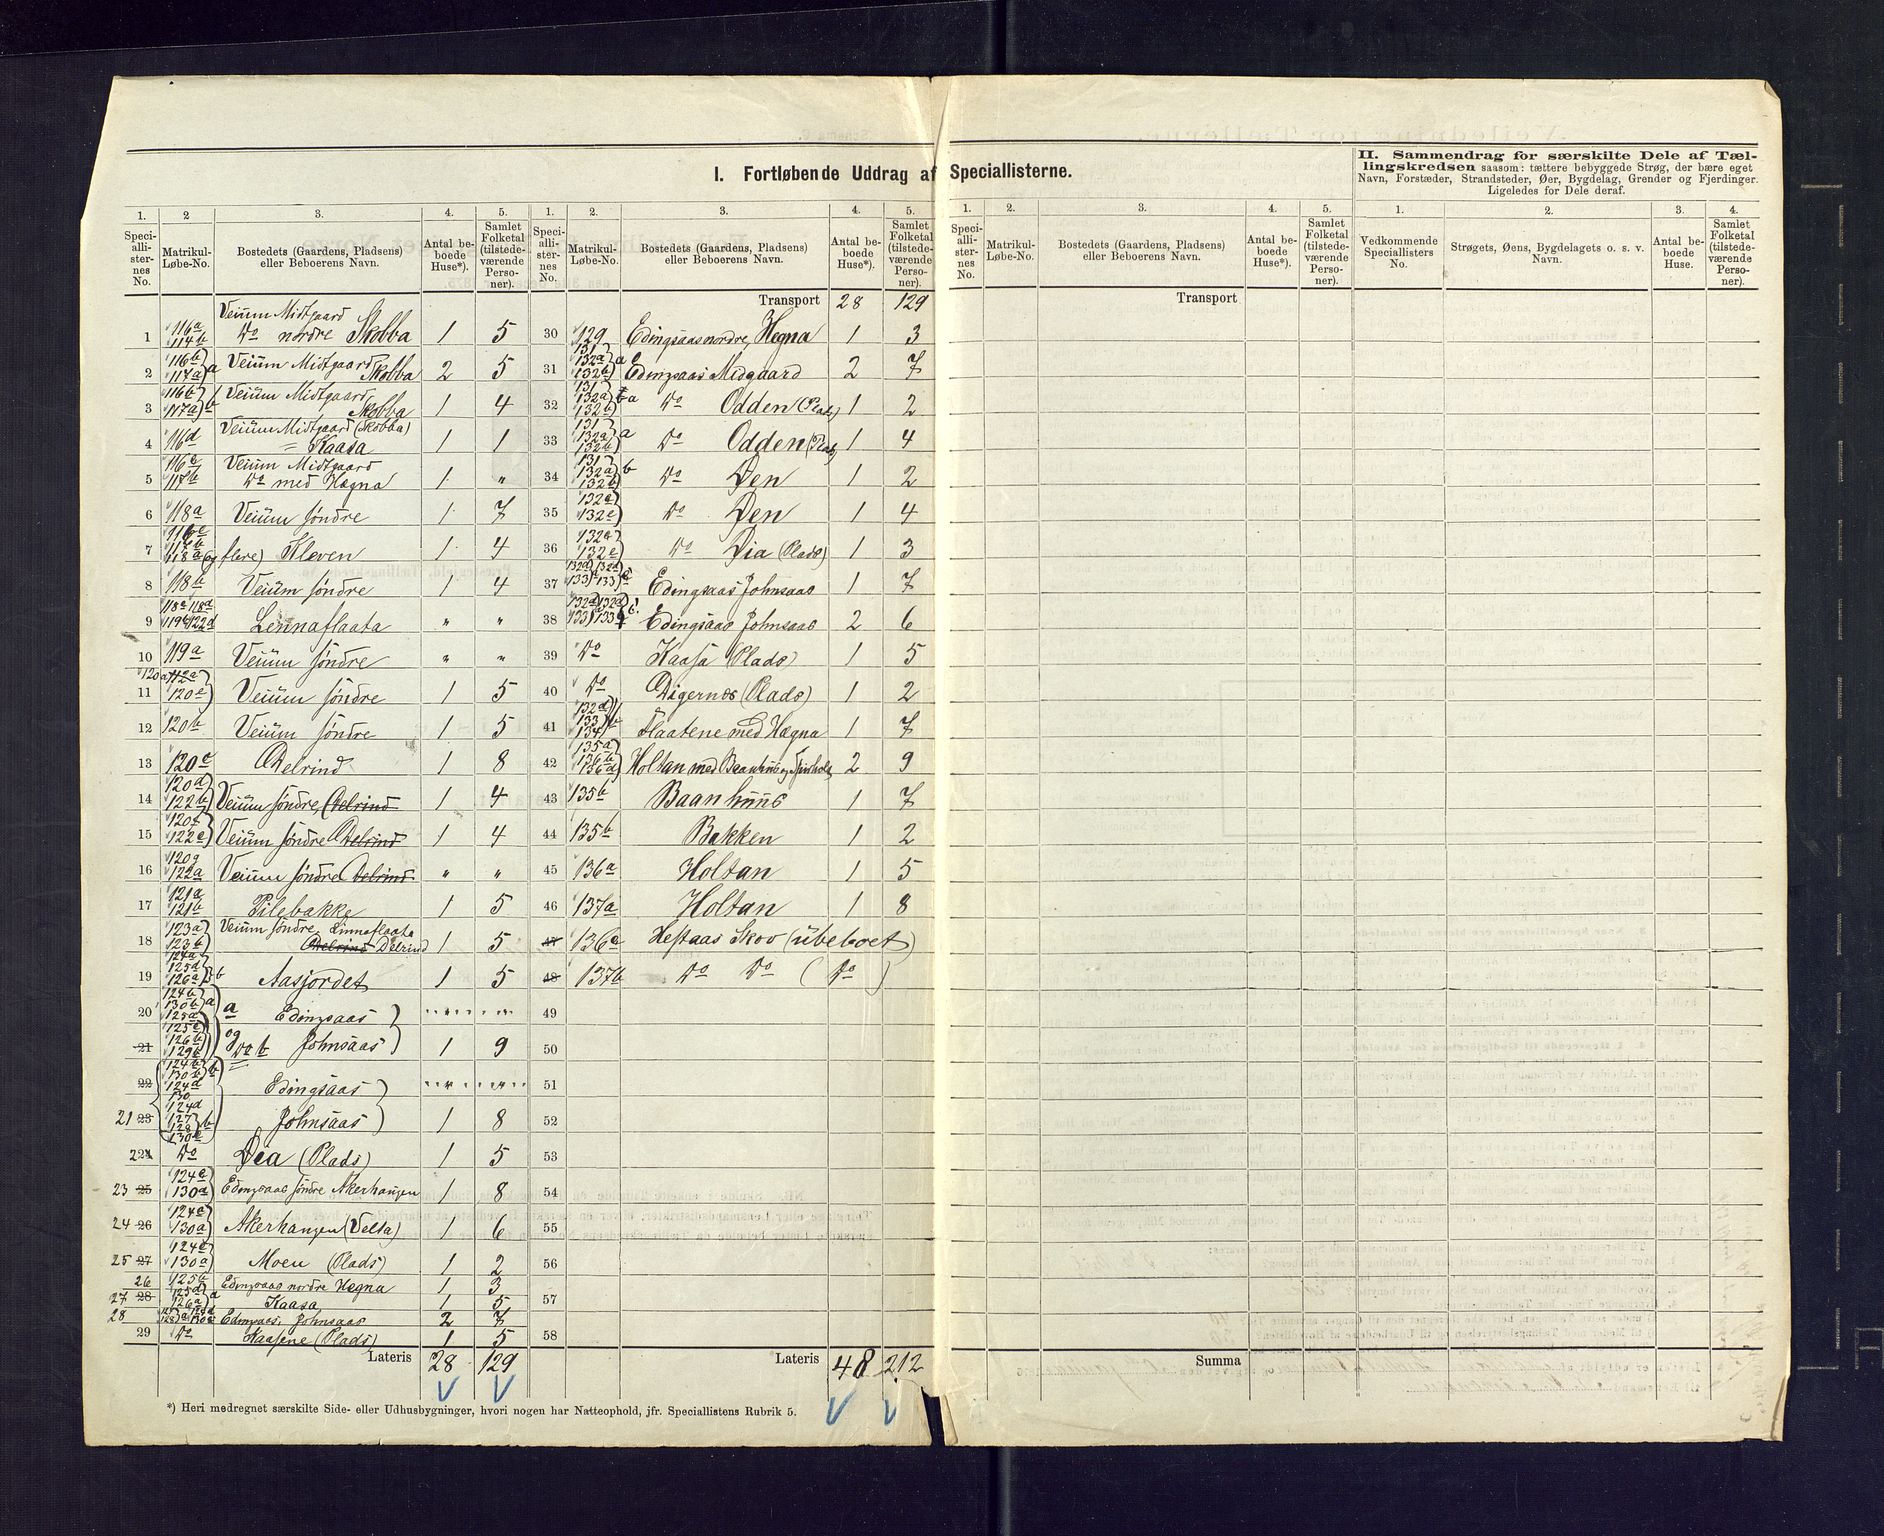 I. Fortløbende Uddrag af Speciallisterne.
II. Sammendrag for særskilte Dele af Tællingskredsen saasom: tættere bebyggede Strøg, der bære eget Navn, Forstæder, Strandsteder, Øer, Bygdelag, Grender og Fjerdinger. Ligeledes for Dele deraf.
1. 2 3. 4. 5. 1. 2. 3. 4. 5. 1. 2. 3. 4. 5. 1. 2. 3. 4.
Speciallisternes No. Matrikul-Løbe-No. Bostedets (Gaardens, Pladsens) eller Beboerens Navn. Antal beboede Huse*). Samlet Folketal (tilstedeværende Personer).
Speciallisternes No. Matrikul-Løbe-No. Bostedets (Gaardens, Pladsens) eller Beboerens Navn. Antal beboede Huse*). Samlet Folketal (tilstedeværende Personer).
Speciallisternes No. Matrikul-Løbe-No. Bostedets (Gaardens, Pladsens) eller Beboerens Navn. Antal beboede Huse*). Samlet Folketal (tilstedeværende Personer).
Vedkommende Speciallisters No. Strøgets, Øens, Bygdelagets o. s. v. Navn. Antal beboede Huse. Samlet Folketal (tilstedeværende Personer).
1 116a 114b Veium Midtgaard Do nordre Skobba 1 5
2 116b 117a a Veium Midtgaard Skobba 2 5
3 116b 117a b Veium Midtgaard Skobba 1 4
4 116d Veium Midtgaard (Skobba) = Kaasa 1 1
5 116e 117b Veium Midtgaard Do med Hægna 1 "
6 118a Veium søndre 1 7
7 116c 117b 118a (og flere) Kleven 1 4
8 118b Veium søndre 1 4
9 Lennaflaata " "
10 119a Veium søndre " "
11 120e Veium søndre 1 5
12 120b Veium søndre 1 5
13 120c Delrind 1 8
14 120d 122b Veium søndre, Delrind 1 4
15 120f 122c Veium søndre Delrind 1 4
16 120g 122a Veium søndre Delrind " "
17 121a 121b Pilebakke 1 5
18 123a 123b Veium søndre, Linnaflaata Delrind Delrind 1 5
19 124a 125d 126a b Aasjordet 1 5
20 124b 130b 125a a a Edingsaas
21 125c 126b 129b og Do b Johnsaas 1 9
22 124b 130b 124d b Edingsaas
21 23 130 124d 127 128 130c b Johnsaas 1 8
22 24 Do Dia (Plads) 1 5
23 25 124c 130a Edingsaas søndre Akerhaugen 1 8
24 26 124c 130a Akerhaugen (Velta) 1 6
25 27 124c 130a Moen (Plads) 1 2
26 125b Edingsaas nordre Hægna 1 3
27 28 125d 126a a Kaasa 1 5
28 Edingsaas, Johnsaas 2 7
29 Do Kaasene (Plads) 1 5
Lateris 28 129
Transport 28 129
30 129 Edingsaas nordre, Hegna 1 3
31 131 132a 132b a Edingsaas Midgaard 2 7
32 131 132a 132b a Do Odden (Plads) 1 2
33 131 132a 132b a Do Odden (Plads) 1 4
34 131 132a 132b b Do Den 1 2
35 132a 132c Do Den 1 4
36 132a 132c Do Dia (Plads) 1 3
37 132d 132d 133 133 Edingsaas Johnsaas 1 7
38 132d 132d 133 133 Edingsaas Johnsaas 2 6
39 Do Kaasa (Plads) 1 5
40 Do Digernes (Plads) 1 2
41 132d 133 134 b Flaatene med Hægna 1 7
42 135a 136b 136d Holtan med Baanhuus og 2 9
43 135b Baanhuus 1 7
44 135b Bakken 1 2
45 136a Holtan 1 5
46 137a Holtan 1 8
47 136c Hestaas Skov (ubeboet)
48 137b Do Do (Do)
49
50
51
52
53
54
55
56
57
58
Lateris 48 212
Transport
Summa
*) Heri medregnet særskilte Side- eller Udhusbygninger, hvori nogen har Natteophold, jfr. Speciallistens Rubrik 5.